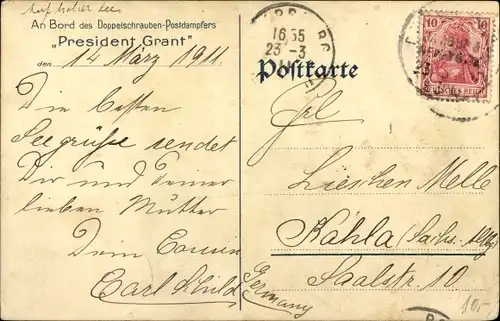 Auf hoher See
An Bord des Doppelschrauben-Postdampfers
"President Grant"
den 14 März 1911
Die besten
Seegrüße sendet
Dir und Deiner
lieben Mutter
Dein Cousin
Carl Schild
16.55
23-3
Postkarte
10 10
DEUTSCHES REICH
Frl
Lieschen Melle
Kahla (Sachs. Altbg)
Saalstr. 10
Germany
10.-